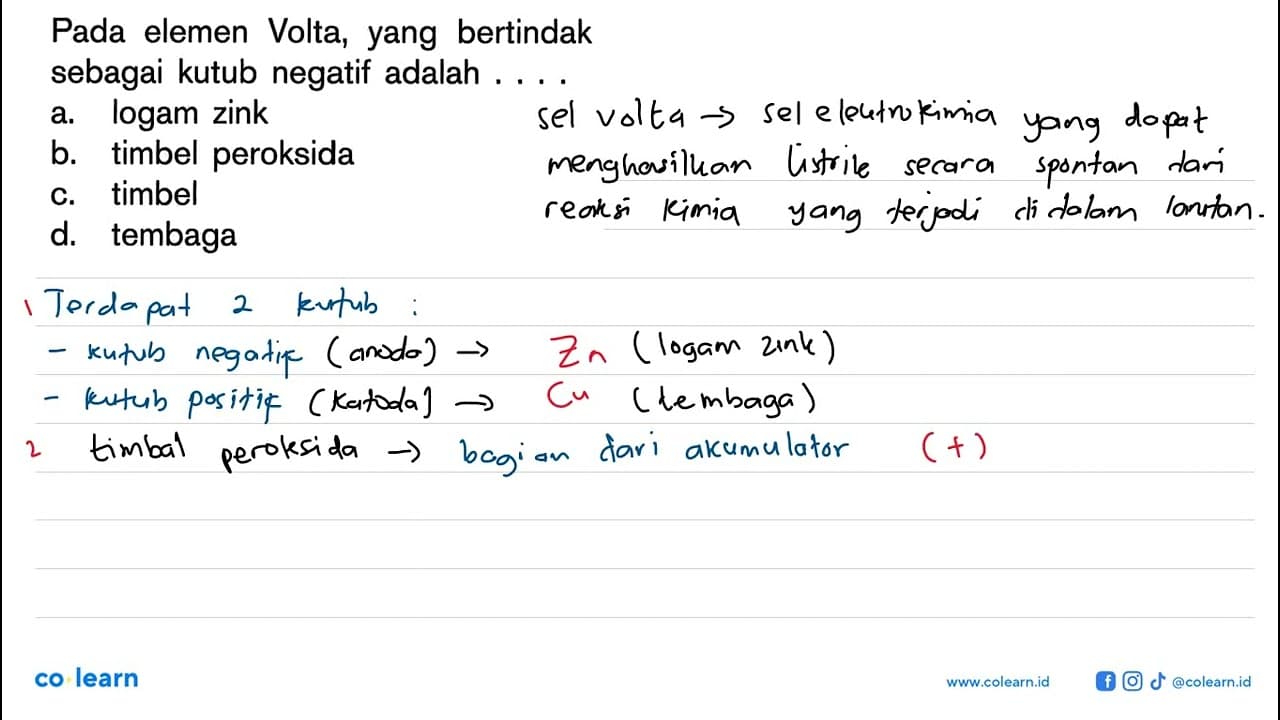 Pada elemen Volta, yang bertindak
sebagai kutub negatif adalah . . . .
a. logam zink
b. timbel peroksida
c. timbel
d. tembaga
sel volta → sel elektrokimia yang dapat
menghasilkan listrik secara spontan dari
reaksi kimia yang terjadi di dalam larutan.
1 Terdapat 2 kutub :
- kutub negatif (anoda) → Zn (logam zink)
- kutub positif (katoda) → Cu (tembaga)
2 timbal peroksida → bagian dari akumulator (+)
co learn
www.colearn.id @colearn.id